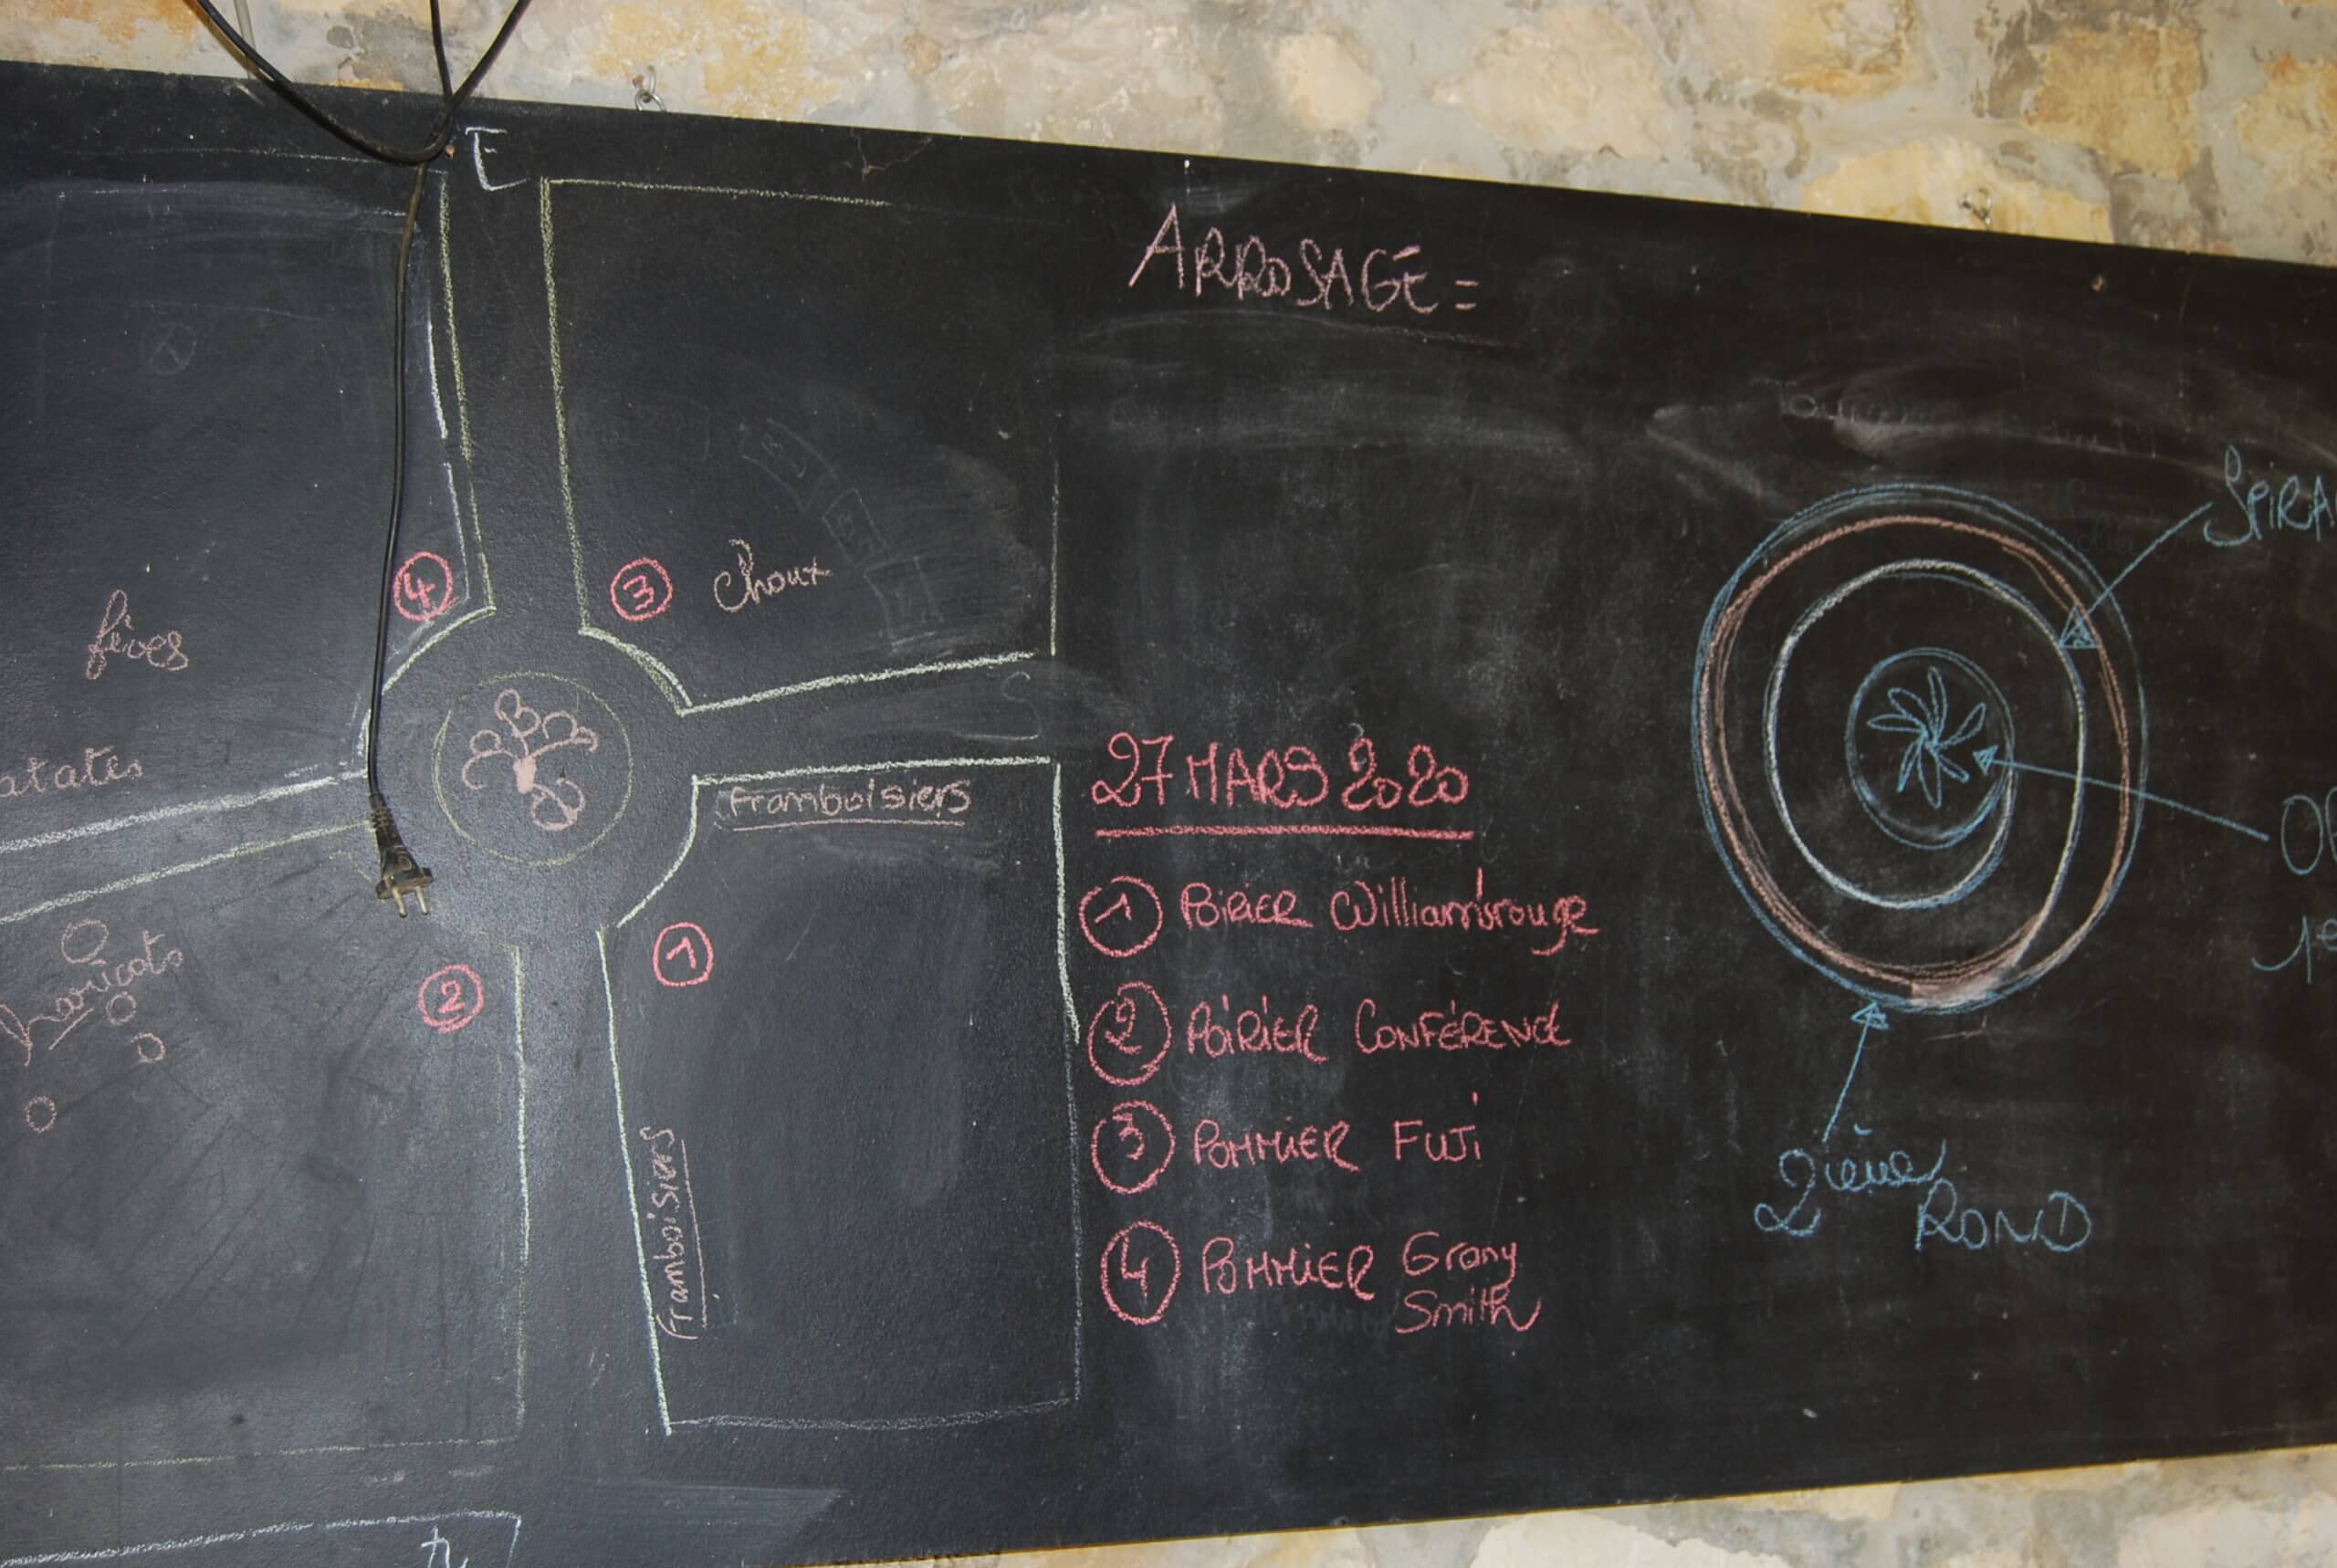 E
ARROSAGE =
④
③
choux
fèves
atates
framboisiers
haricots
②
①
framboisiers
27 MARS 2020
① POIRIER William's rouge
② POIRIER CONFÉRENCE
③ POMMIER FUJi
④ POMMIER Grany
Smith
SPIRA
2ième
ROND